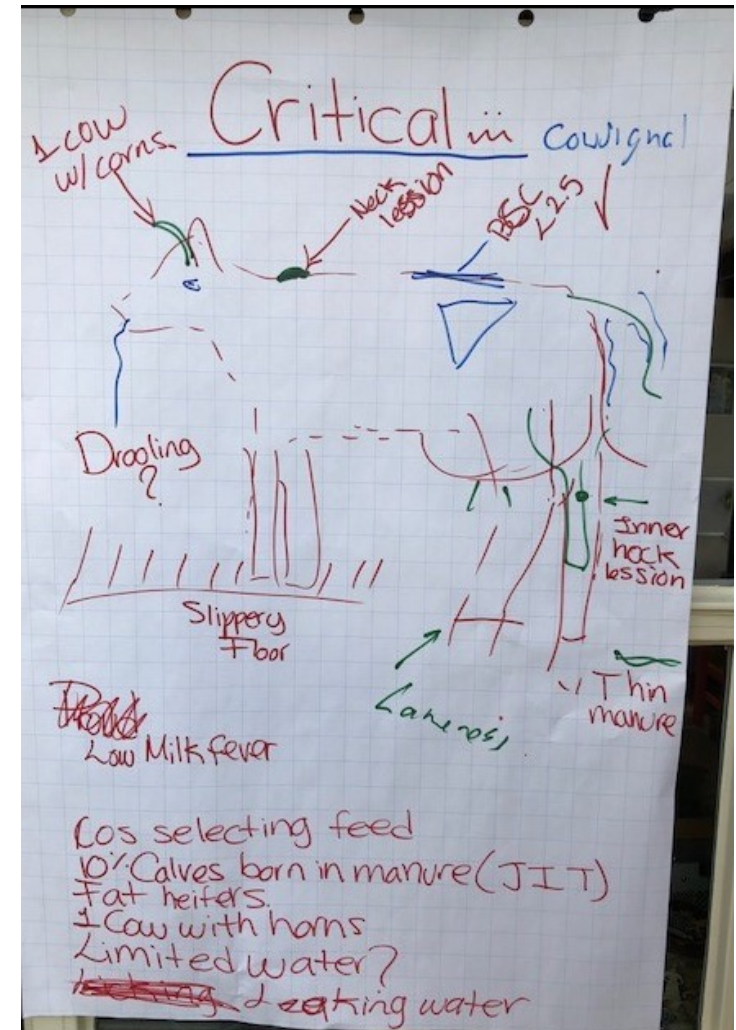 Critical...
Cowsignal
1 cow
w/ corns.
Neck
lession
BSC
<2.5
Drooling
?
Inner
hock
lession
Slippery
Floor
Lameness
Thin
manure
Low Milk fever
Cos selecting feed
10% Calves born in manure (JIT)
Fat heifers.
1 Cow with horns
Limited water?
Leaking water